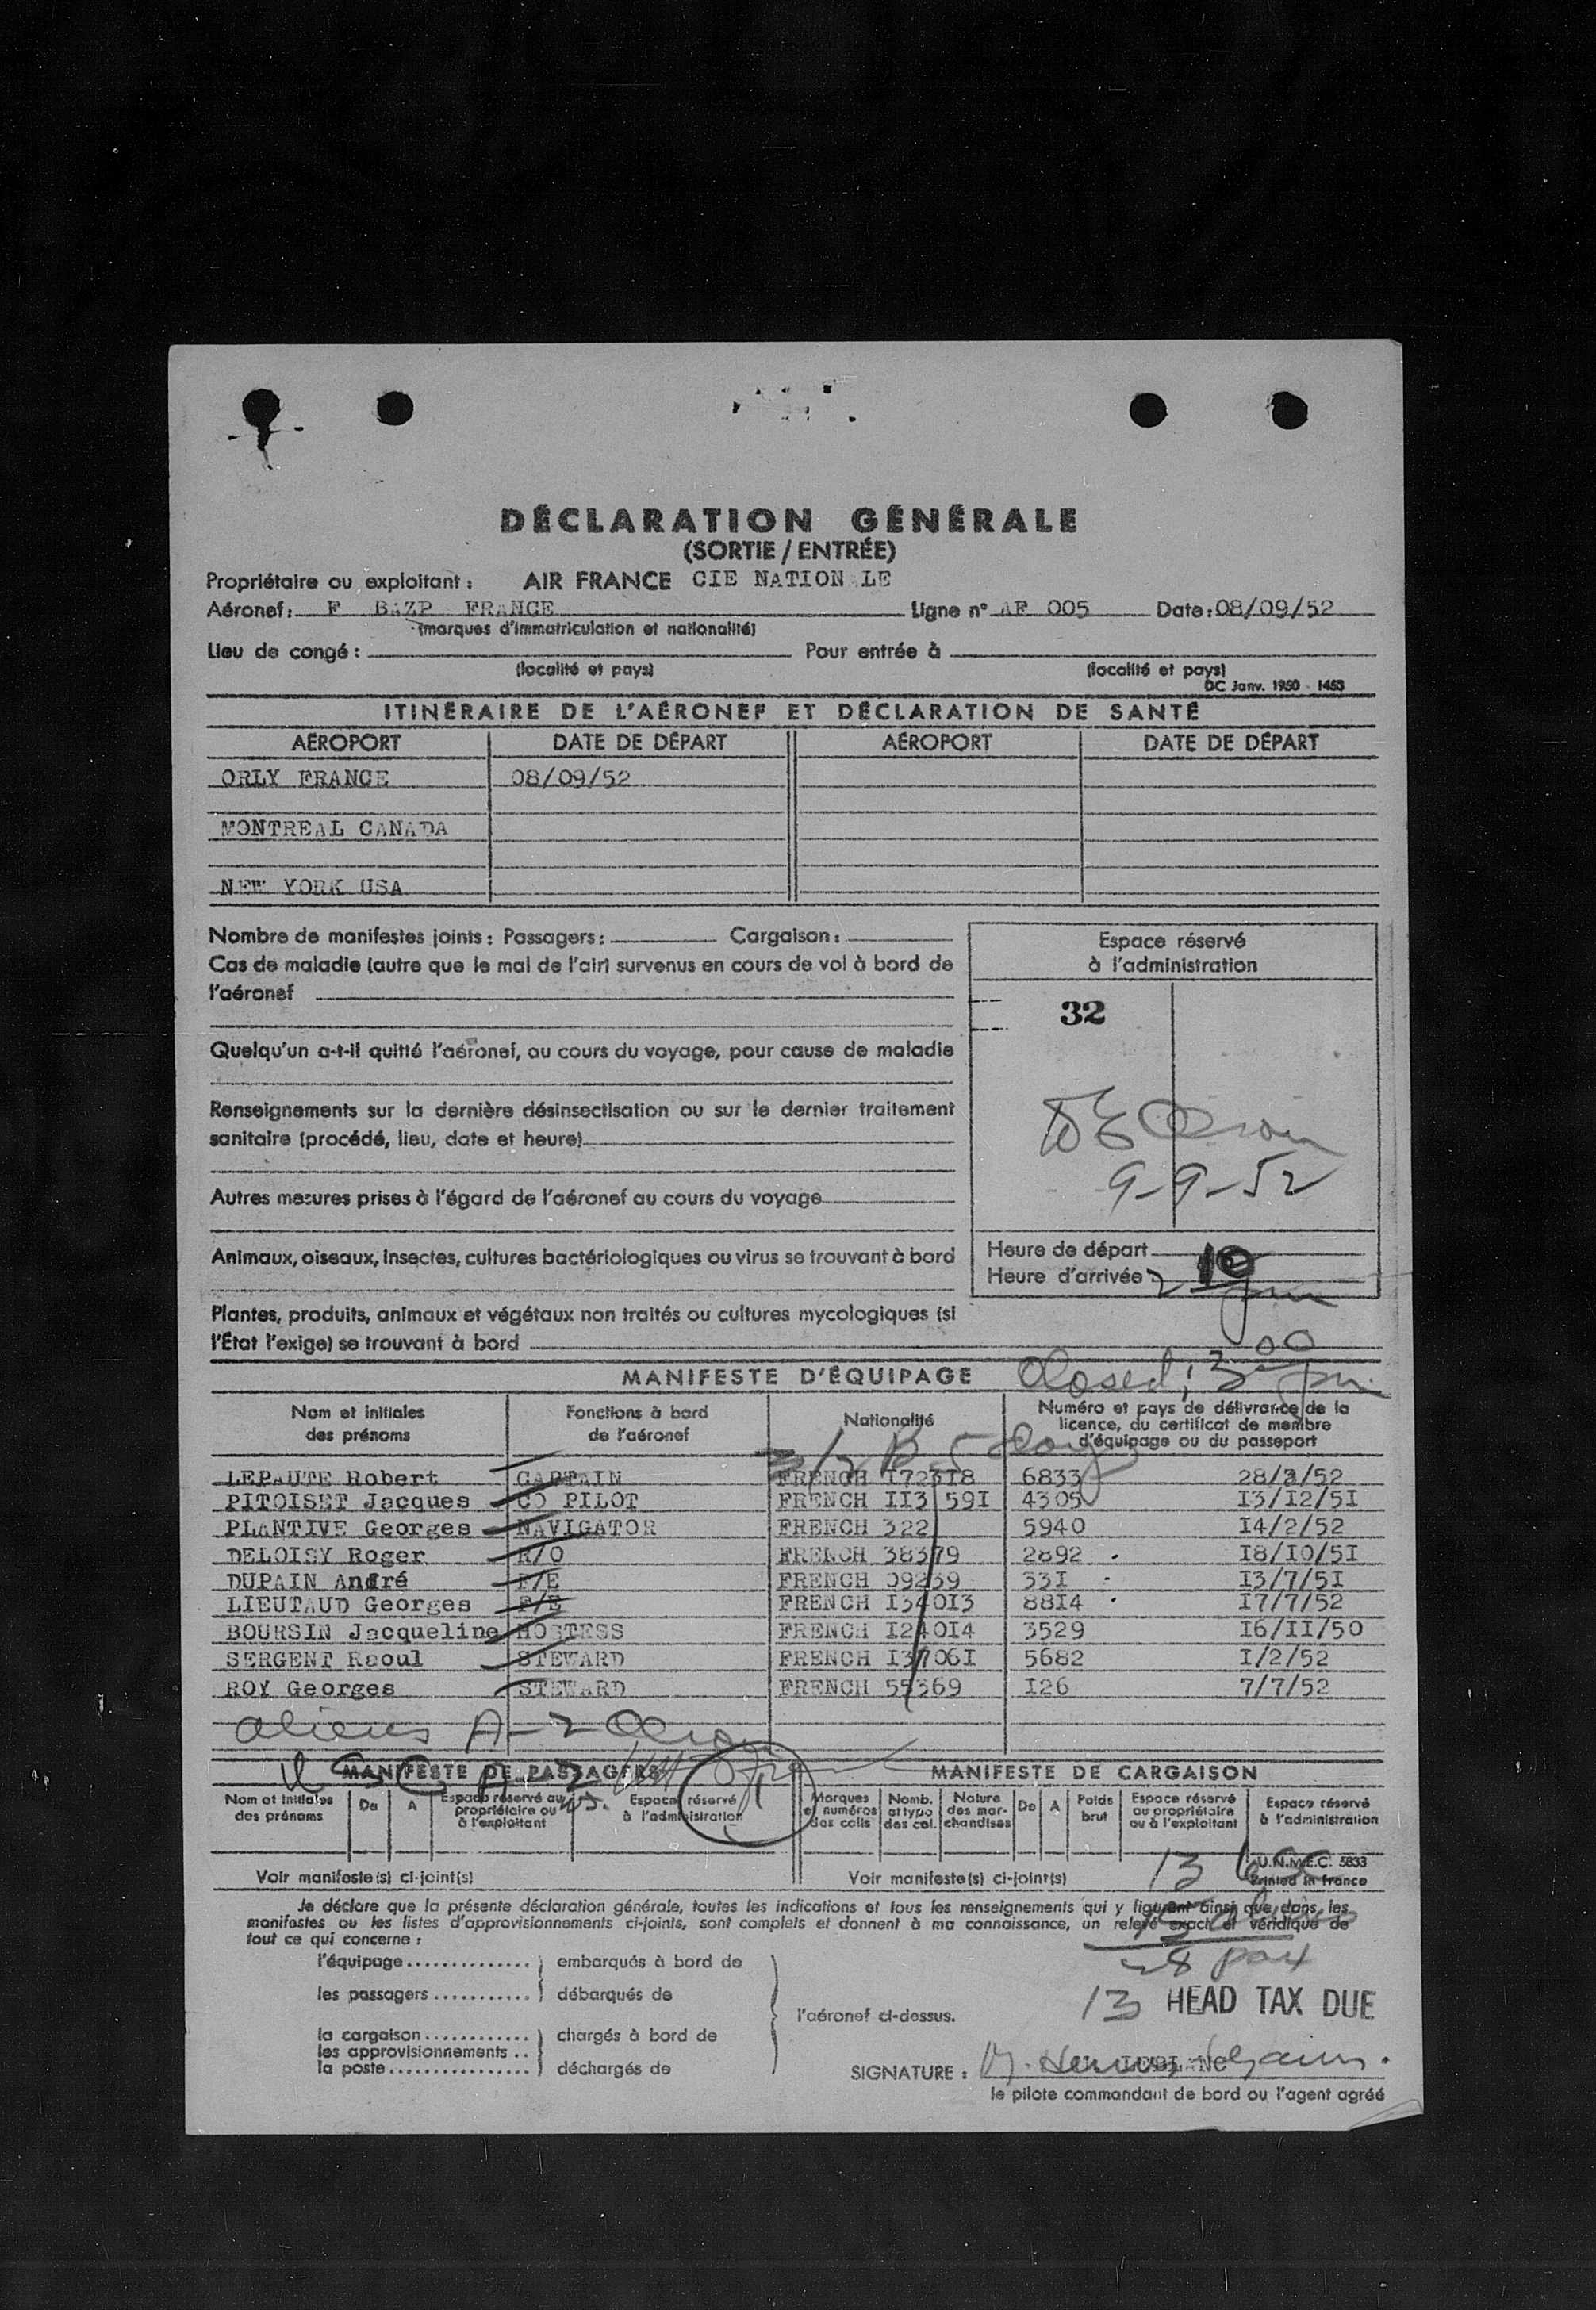 DÉCLARATION GÉNÉRALE
(SORTIE / ENTRÉE)
Propriétaire ou exploitant : AIR FRANCE CIE NATION LE
Aéronef : F BAZP FRANCE Ligne n° AF 005 Date : 08/09/52
(marques d'immatriculation et nationalité)
Lieu de congé : Pour entrée à
(localité et pays) (localité et pays)
DC Janv. 1950 - 1453
ITINÉRAIRE DE L'AÉRONEF ET DÉCLARATION DE SANTÉ
AÉROPORT DATE DE DÉPART AÉROPORT DATE DE DÉPART
ORLY FRANCE 08/09/52
MONTREAL CANADA
NEW YORK USA
Nombre de manifestes joints : Passagers : Cargaison :
Cas de maladie (autre que le mal de l'air) survenus en cours de vol à bord de
l'aéronef
Quelqu'un a-t-il quitté l'aéronef, au cours du voyage, pour cause de maladie
Renseignements sur la dernière désinsectisation ou sur le dernier traitement
sanitaire (procédé, lieu, date et heure)
Autres mesures prises à l'égard de l'aéronef au cours du voyage
Animaux, oiseaux, insectes, cultures bactériologiques ou virus se trouvant à bord
Plantes, produits, animaux et végétaux non traités ou cultures mycologiques (si
l'État l'exige) se trouvant à bord
Espace réservé
à l'administration
32
9-9-52
Heure de départ
Heure d'arrivée 2 10 pm
MANIFESTE D'ÉQUIPAGE Closed; 3 00 pm
Nom et initiales
des prénoms
Fonctions à bord
de l'aéronef
Nationalité
Numéro et pays de délivrance de la
licence, du certificat de membre
d'équipage ou du passeport
LEPAUTE Robert CAPTAIN FRENCH 172318 6833 28/2/52
PITOISET Jacques CO PILOT FRENCH II3 59I 4305 I3/I2/5I
PLANTIVE Georges NAVIGATOR FRENCH 322 5940 I4/2/52
DELOISY Roger R/O FRENCH 38379 2892 I8/IO/5I
DUPAIN André F/E FRENCH 09239 33I I3/7/5I
LIEUTAUD Georges F/E FRENCH I34OI3 88I4 I7/7/52
BOURSIN Jacqueline HOSTESS FRENCH I24OI4 3529 I6/II/50
SERGENT Raoul STEWARD FRENCH I37O6I 5682 I/2/52
ROY Georges STEWARD FRENCH 55369 I26 7/7/52
aliens A-2
MANIFESTE DE PASSAGERS MANIFESTE DE CARGAISON
Nom et initiales
des prénoms
De A
Espace réservé au
propriétaire ou
à l'exploitant
Espace réservé
à l'administration
Marques
et numéros
des colis
Nomb.
et type
des col.
Nature
des mar-
chandises
De A
Poids
brut
Espace réservé
au propriétaire
ou à l'exploitant
Espace réservé
à l'administration
Voir manifeste(s) ci-joint(s) Voir manifeste(s) ci-joint(s)
13
U.N.M.E.C. 5833
Printed in France
Je déclare que la présente déclaration générale, toutes les indications et tous les renseignements qui y figurent ainsi que dans les
manifestes ou les listes d'approvisionnements ci-joints, sont complets et donnent à ma connaissance, un relevé exact et véridique de
tout ce qui concerne :
l'équipage .............. embarqués à bord de
les passagers ........... débarqués de
l'aéronef ci-dessus.
la cargaison ............ chargés à bord de
les approvisionnements ..
la poste ................ déchargés de
28 pax
13 HEAD TAX DUE
SIGNATURE :
le pilote commandant de bord ou l'agent agréé